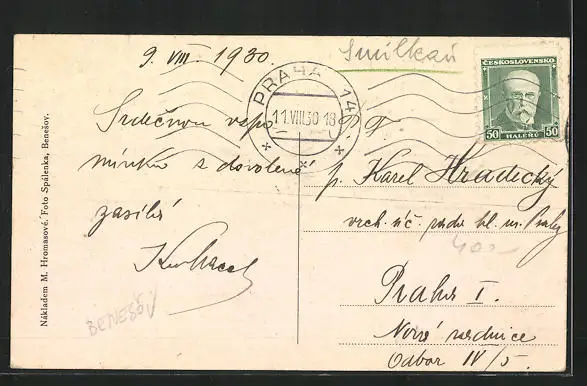 9. VIII. 1930.
Smilkau
ČESKOSLOVENSKO
50 HALÉŘŮ 50
PRAHA 14
11.VIII.30 18
Srdečnou vzpo
mínku z dovolené
zasílá
P. T.
p. Karel Hradecký
vrch. úč. rada hl. m. Prahy
400
Praha I.
Nová radnice
Odbor IV/5.
BENEŠOV
Nákladem M. Hromasové. Foto Spálenka, Benešov.